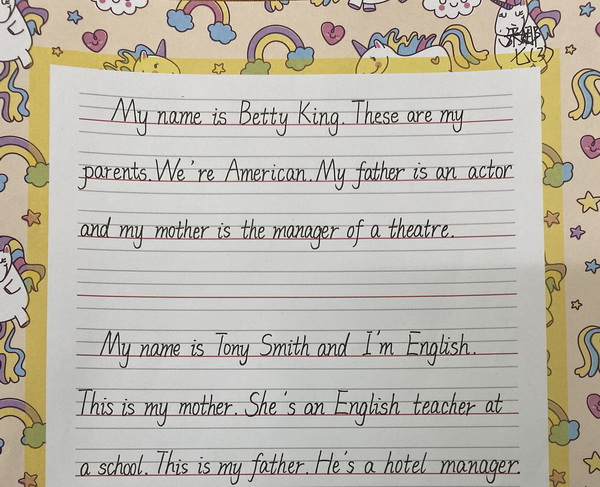 七(3)
My name is Betty King. These are my
parents. We're American. My father is an actor
and my mother is the manager of a theatre.
My name is Tony Smith and I'm English.
This is my mother. She's an English teacher at
a school. This is my father. He's a hotel manager.